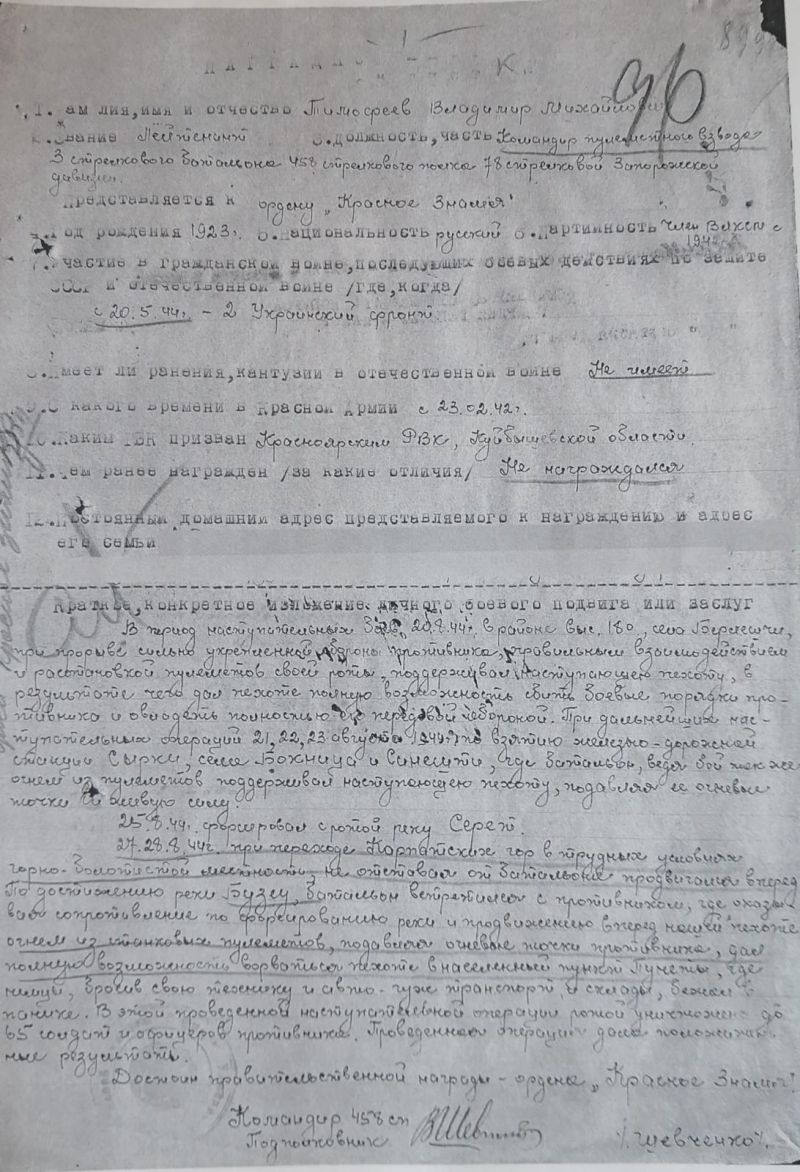 899
НАГРАДНОЙ ЛИСТ К.
1. ам лия, имя и отчество Тимофеев Владимир Михайлович
2. Звание Лейтенант 3. Должность, часть Командир пулеметного взвода
3 стрелкового батальона 458 стрелкового полка 78 стрелковой Запорожской
дивизии.
Представляется к ордену „Красное Знамя"
4. Год рождения 1923г. 5. Национальность русский 6. Партийность член ВЛКСМ с
194
7. Участие в гражданской войне, последующих боевых действиях по защите
СССР и отечественной войне /где, когда/
с 20.5.44г. - 2 Украинский фронт
8. Имеет ли ранения, кантузии в отечественной войне Не имеет
9. С какого времени в Красной Армии с 23.02.42г.
10. Каким РВК призван Красноярским РВК, Куйбышевской области.
11. Чем ранее награжден /за какие отличия/ Не награждался
12. Постоянный домашний адрес представляемого к награждению и адрес
его семьи
Краткое, конкретное изложение личного боевого подвига или заслуг
В период наступательных боев 20.8.44г. в районе выс. 180, села
при прорыве сильно укрепленной обороны противника, правильным взаимодействием
и расстановкой пулеметов своей роты, поддерживал наступающею пехоту, в
результате чего дал пехоте полную возможность сбить боевые порядки про-
тивника и овладеть полностью его передовой обороной. При дальнейших нас-
тупательных операций 21, 22, 23 августа 1944г. по взятию железно-дорожной
станции Сырки, села Божница и Синешти, где батальон, ведя бой также
огнем из пулеметов поддерживал наступающею пехоту, подавляя ее огневые
точки и живую силу.
25.8.44г. форсировал с ротой реку Серет.
27.28.8.44г. при переходе Карпатских гор в трудных условиях
горно-болотистой местности не отставал от батальона продвигался вперед
По достижению реки Бузеу, батальон встретился с противником, где оказы-
вал сопротивление по форсированию реки и продвижению вперед нашей пехоте
огнем из станковых пулеметов, подавляя огневые точки противника, дал
полную возможность ворваться пехоте в населенный пункт Пунеты, где
немцы, бросив свою технику и авто-гуж транспорт и склады, бежал в
панике. В этой проведенной наступательной операции ротой уничтожено до
65 солдат и офицеров противника. Проведенная операция дала положитель-
ные результаты.
Достоин правительственной награды - ордена „Красное Знамя"
Командир 458 сп
Подполковник /Шевченко/.